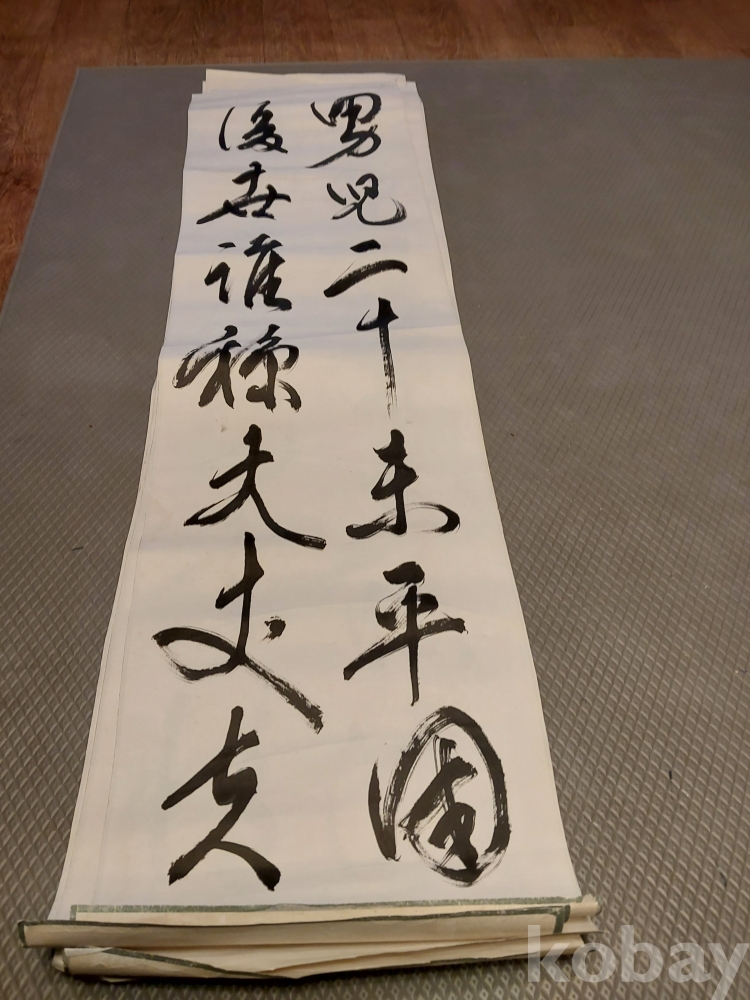 男兒二十未平國
後世誰稱大丈夫
kobay